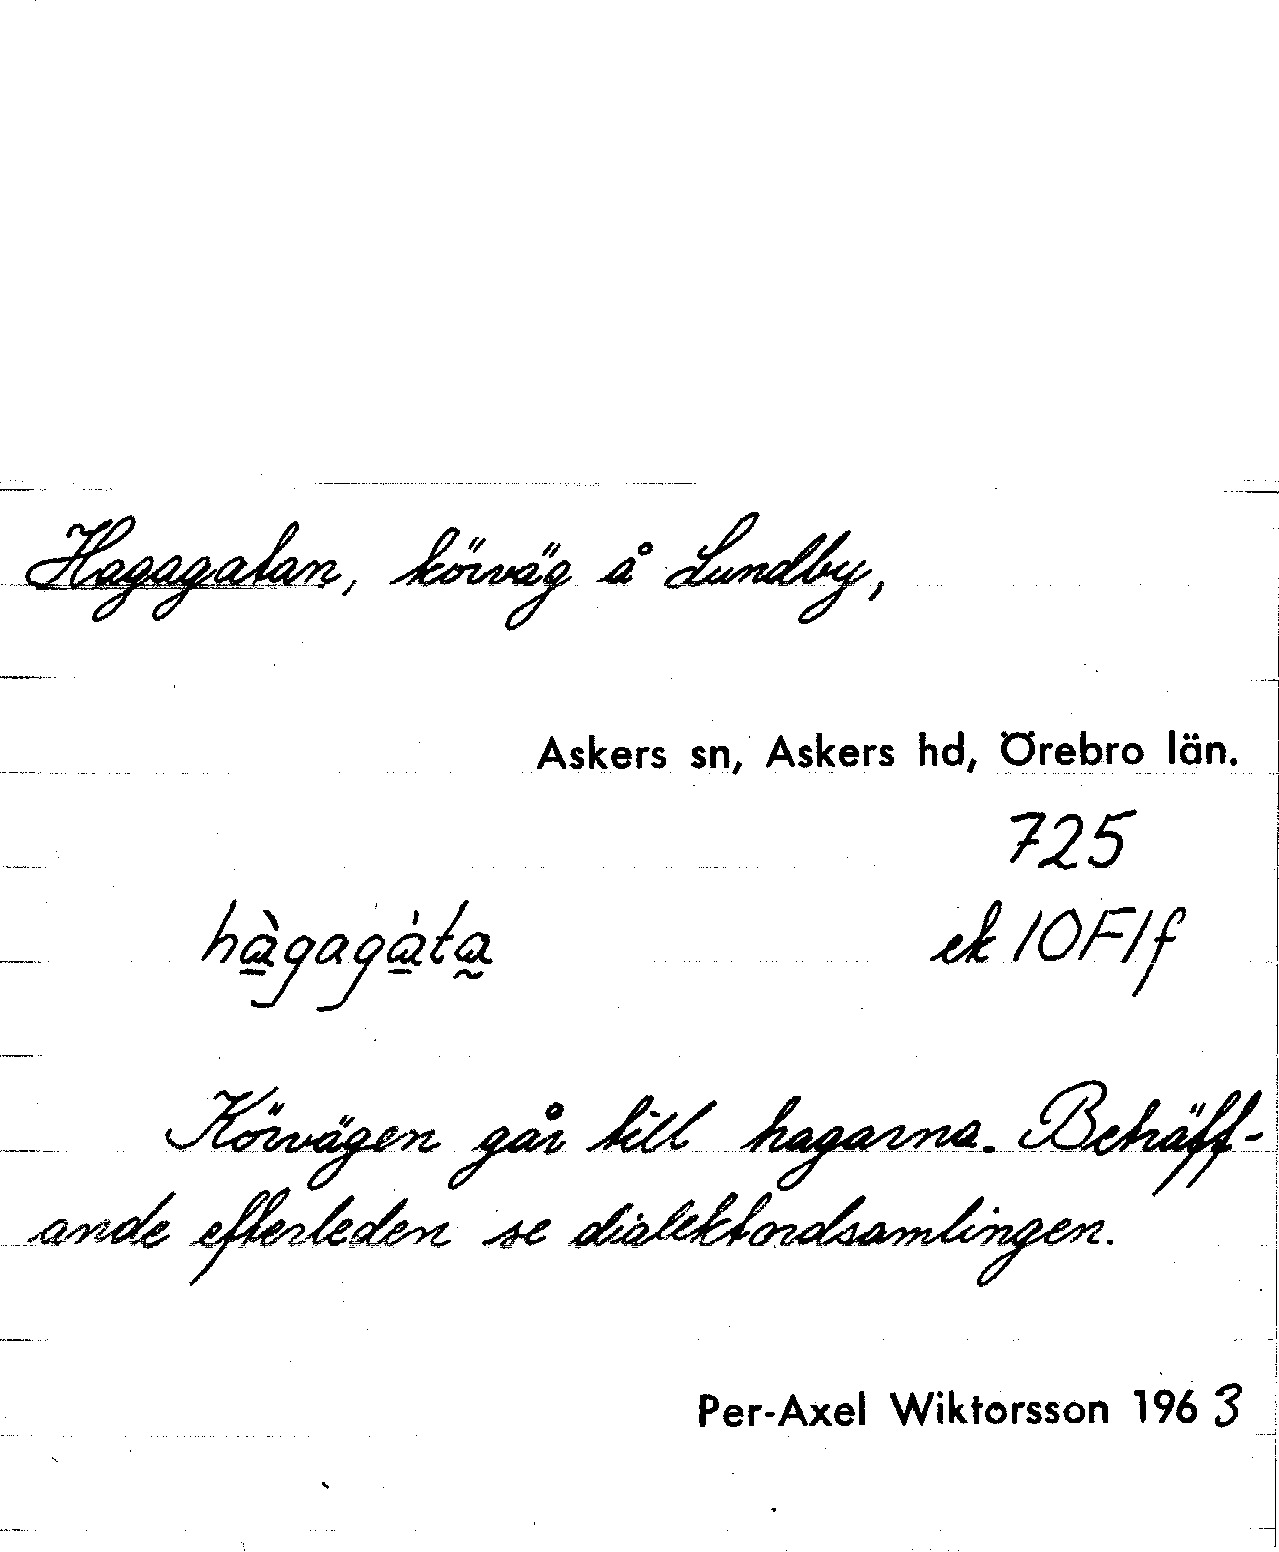 Hagagatan, körväg å Lundby,
Askers sn, Askers hd, Örebro län.
725
hàgagàta ek 10F1f
Körvägen går till hagarna. Beträff-
ande efterleden se dialektordsamlingen.
Per-Axel Wiktorsson 1963